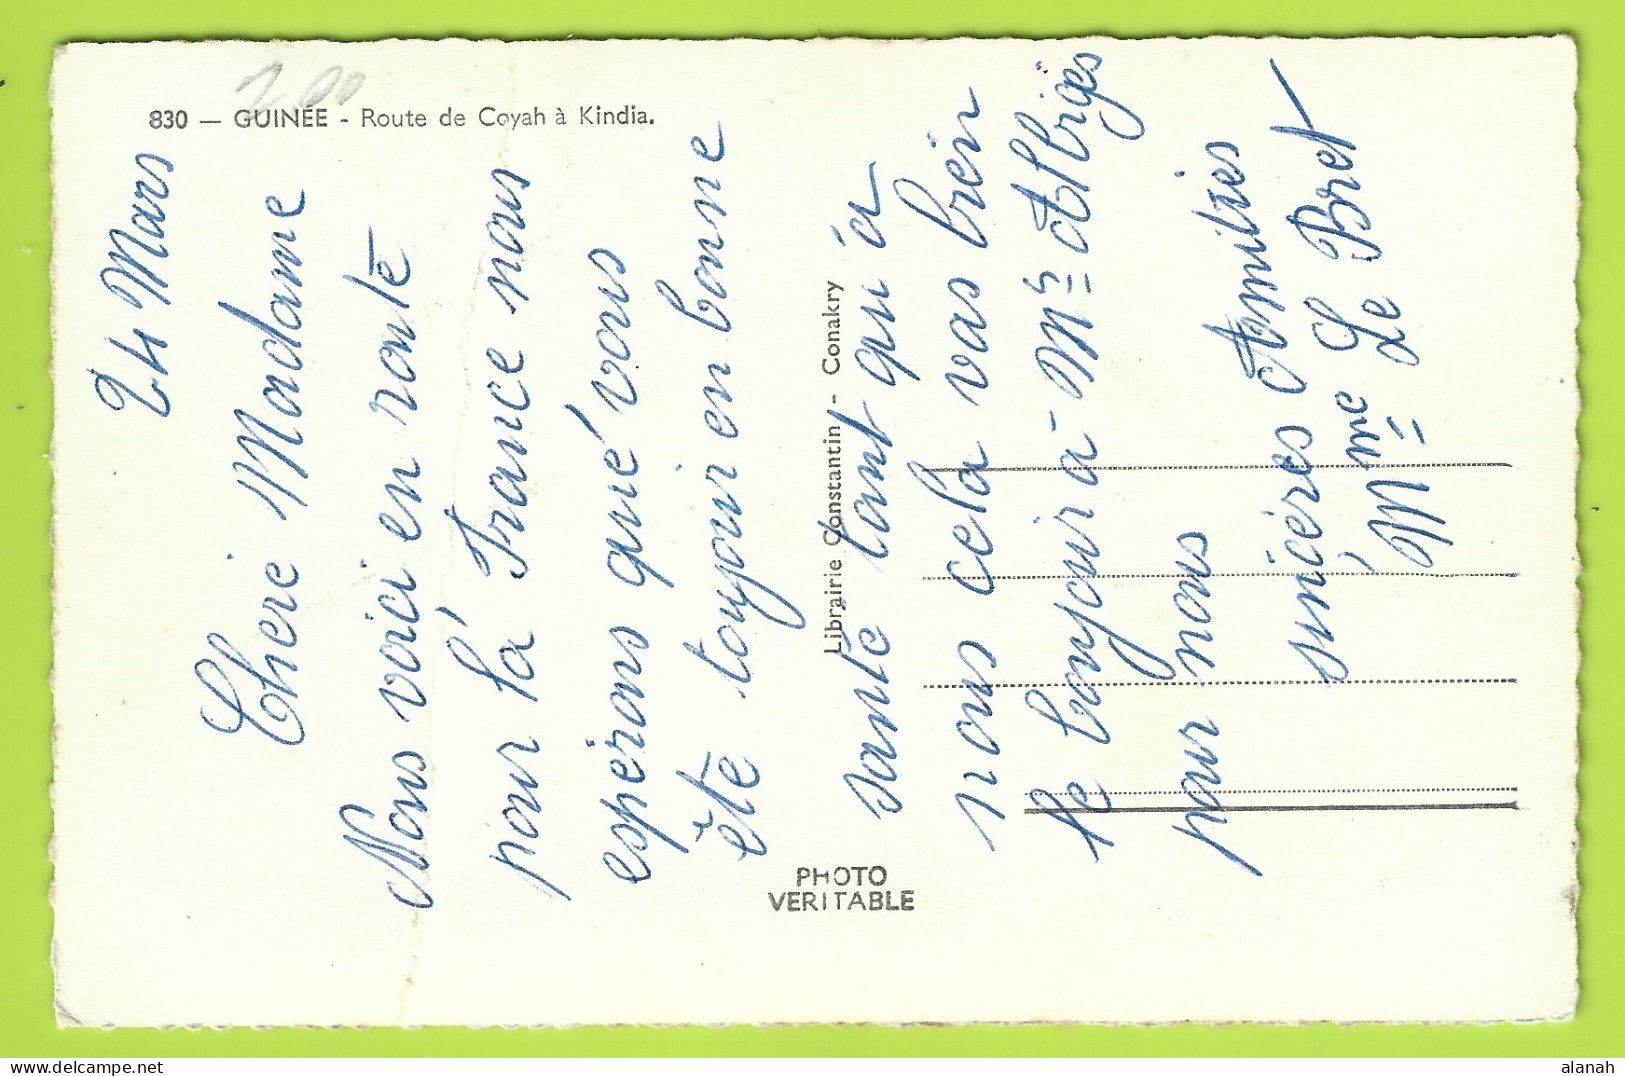 200
830 — GUINÉE - Route de Coyah à Kindia.
24 Mars
Cherie Madame
Nous voici en route
pour la France nous
espérons que vous
ête toujour en bonne
santé tant qu'à
nous cela vas bien
le bonjour à Mrs Albiges
pour nous
sincéres Amitiés
Mme Le Bret
Librairie Constantin - Conakry
PHOTO
VERITABLE
delcampe.net
alanah